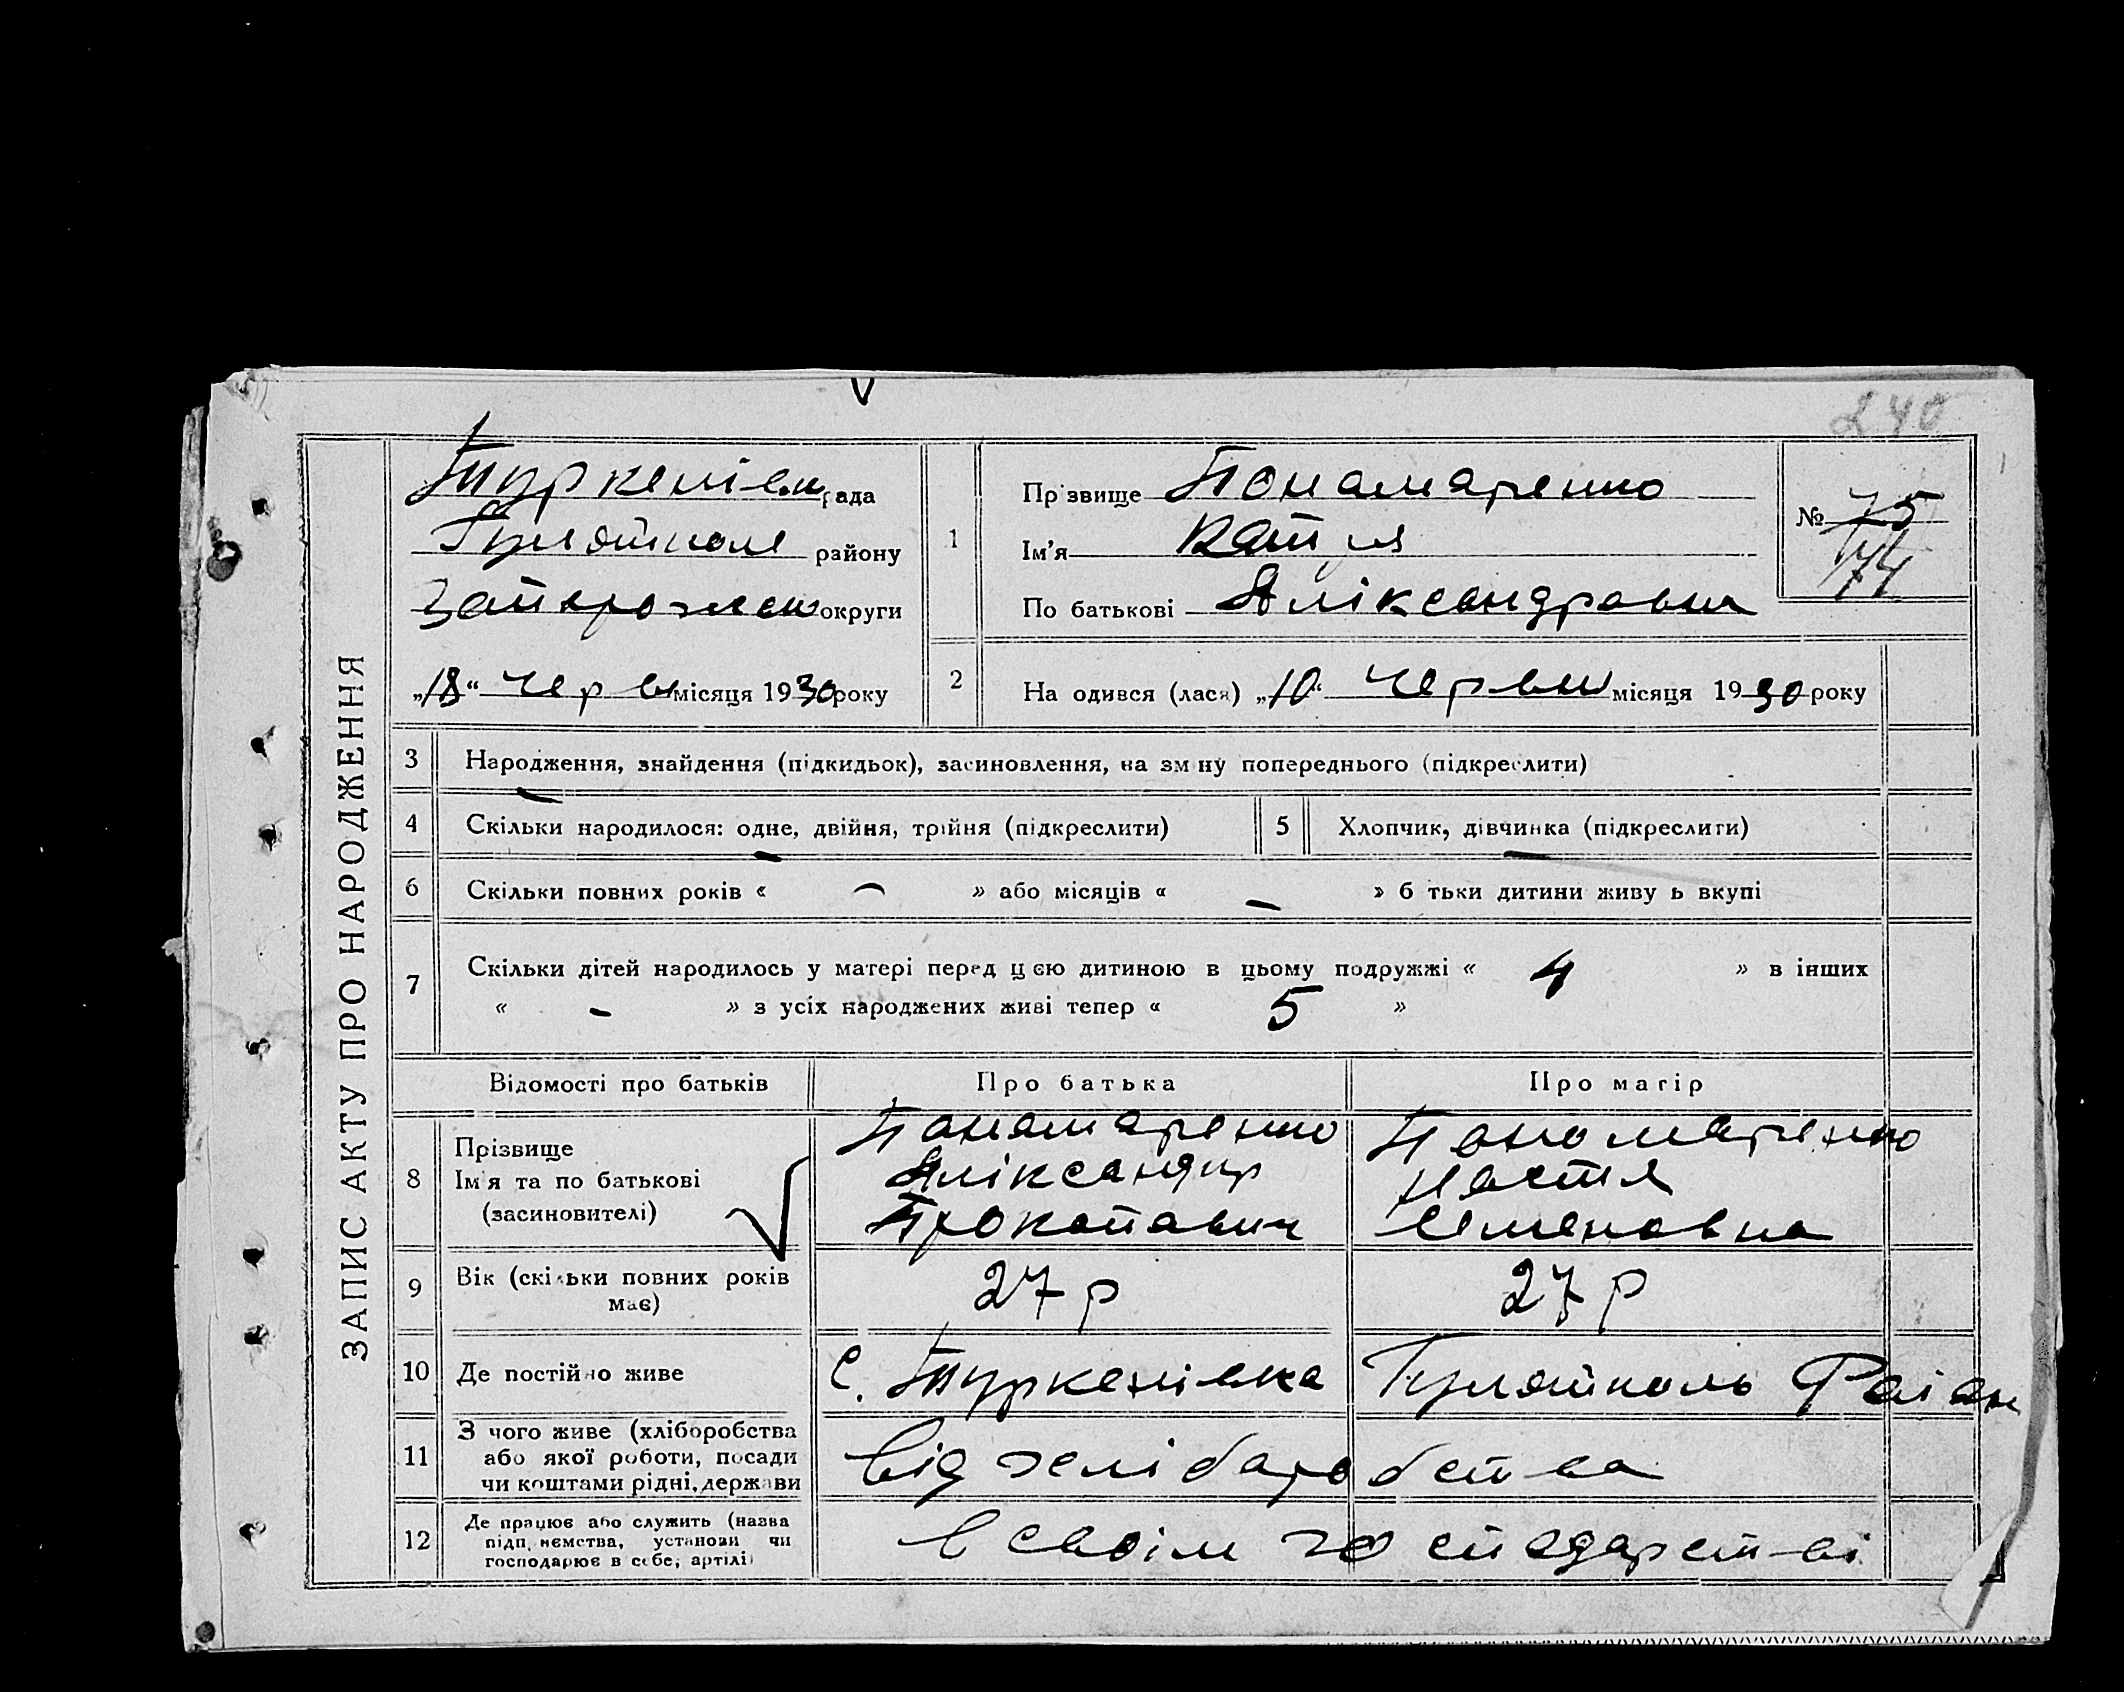 240
ЗАПИС АКТУ ПРО НАРОДЖЕННЯ
Туркенівк рада
Гуляйполе району
Запорожск округи
„18“ Черв місяця 1930 року
1
Прізвище Понамаренко
Ім'я Катя
По батькові Аліксандровна
№ 75
74
2
На одився (лася) „10“ Червня місяця 1930 року
3 Народження, знайдення (підкидьок), засиновлення, на зміну попереднього (підкреслити)
4 Скільки народилося: одне, двійня, трійня (підкреслити)
5 Хлопчик, дівчинка (підкреслити)
6 Скільки повних років « – » або місяців « – » б тьки дитини живу ь вкупі
7 Скільки дітей народилось у матері перед цією дитиною в цьому подружжі « 4 » в інших
« – » з усіх народжених живі тепер « 5 »
Відомості про батьків Про батька Про матір
8 Прізвище
Ім'я та по батькові
(засиновителі)
Понамаренко
Аліксандир
Прокопавич
Пономаренко
Настя
Семеновна
9 Вік (скільки повних років
має)
27 р
27 р
10 Де постійно живе
С. Туркенівка Гуляйполь Раіан
11 З чого живе (хліборобства
або якої роботи, посади
чи коштами рідні, держави
від хлібаробства
12 Де працює або служить (назва
підп. иємства, установи чи
господарює в себе, артілі)
в своім господарстві